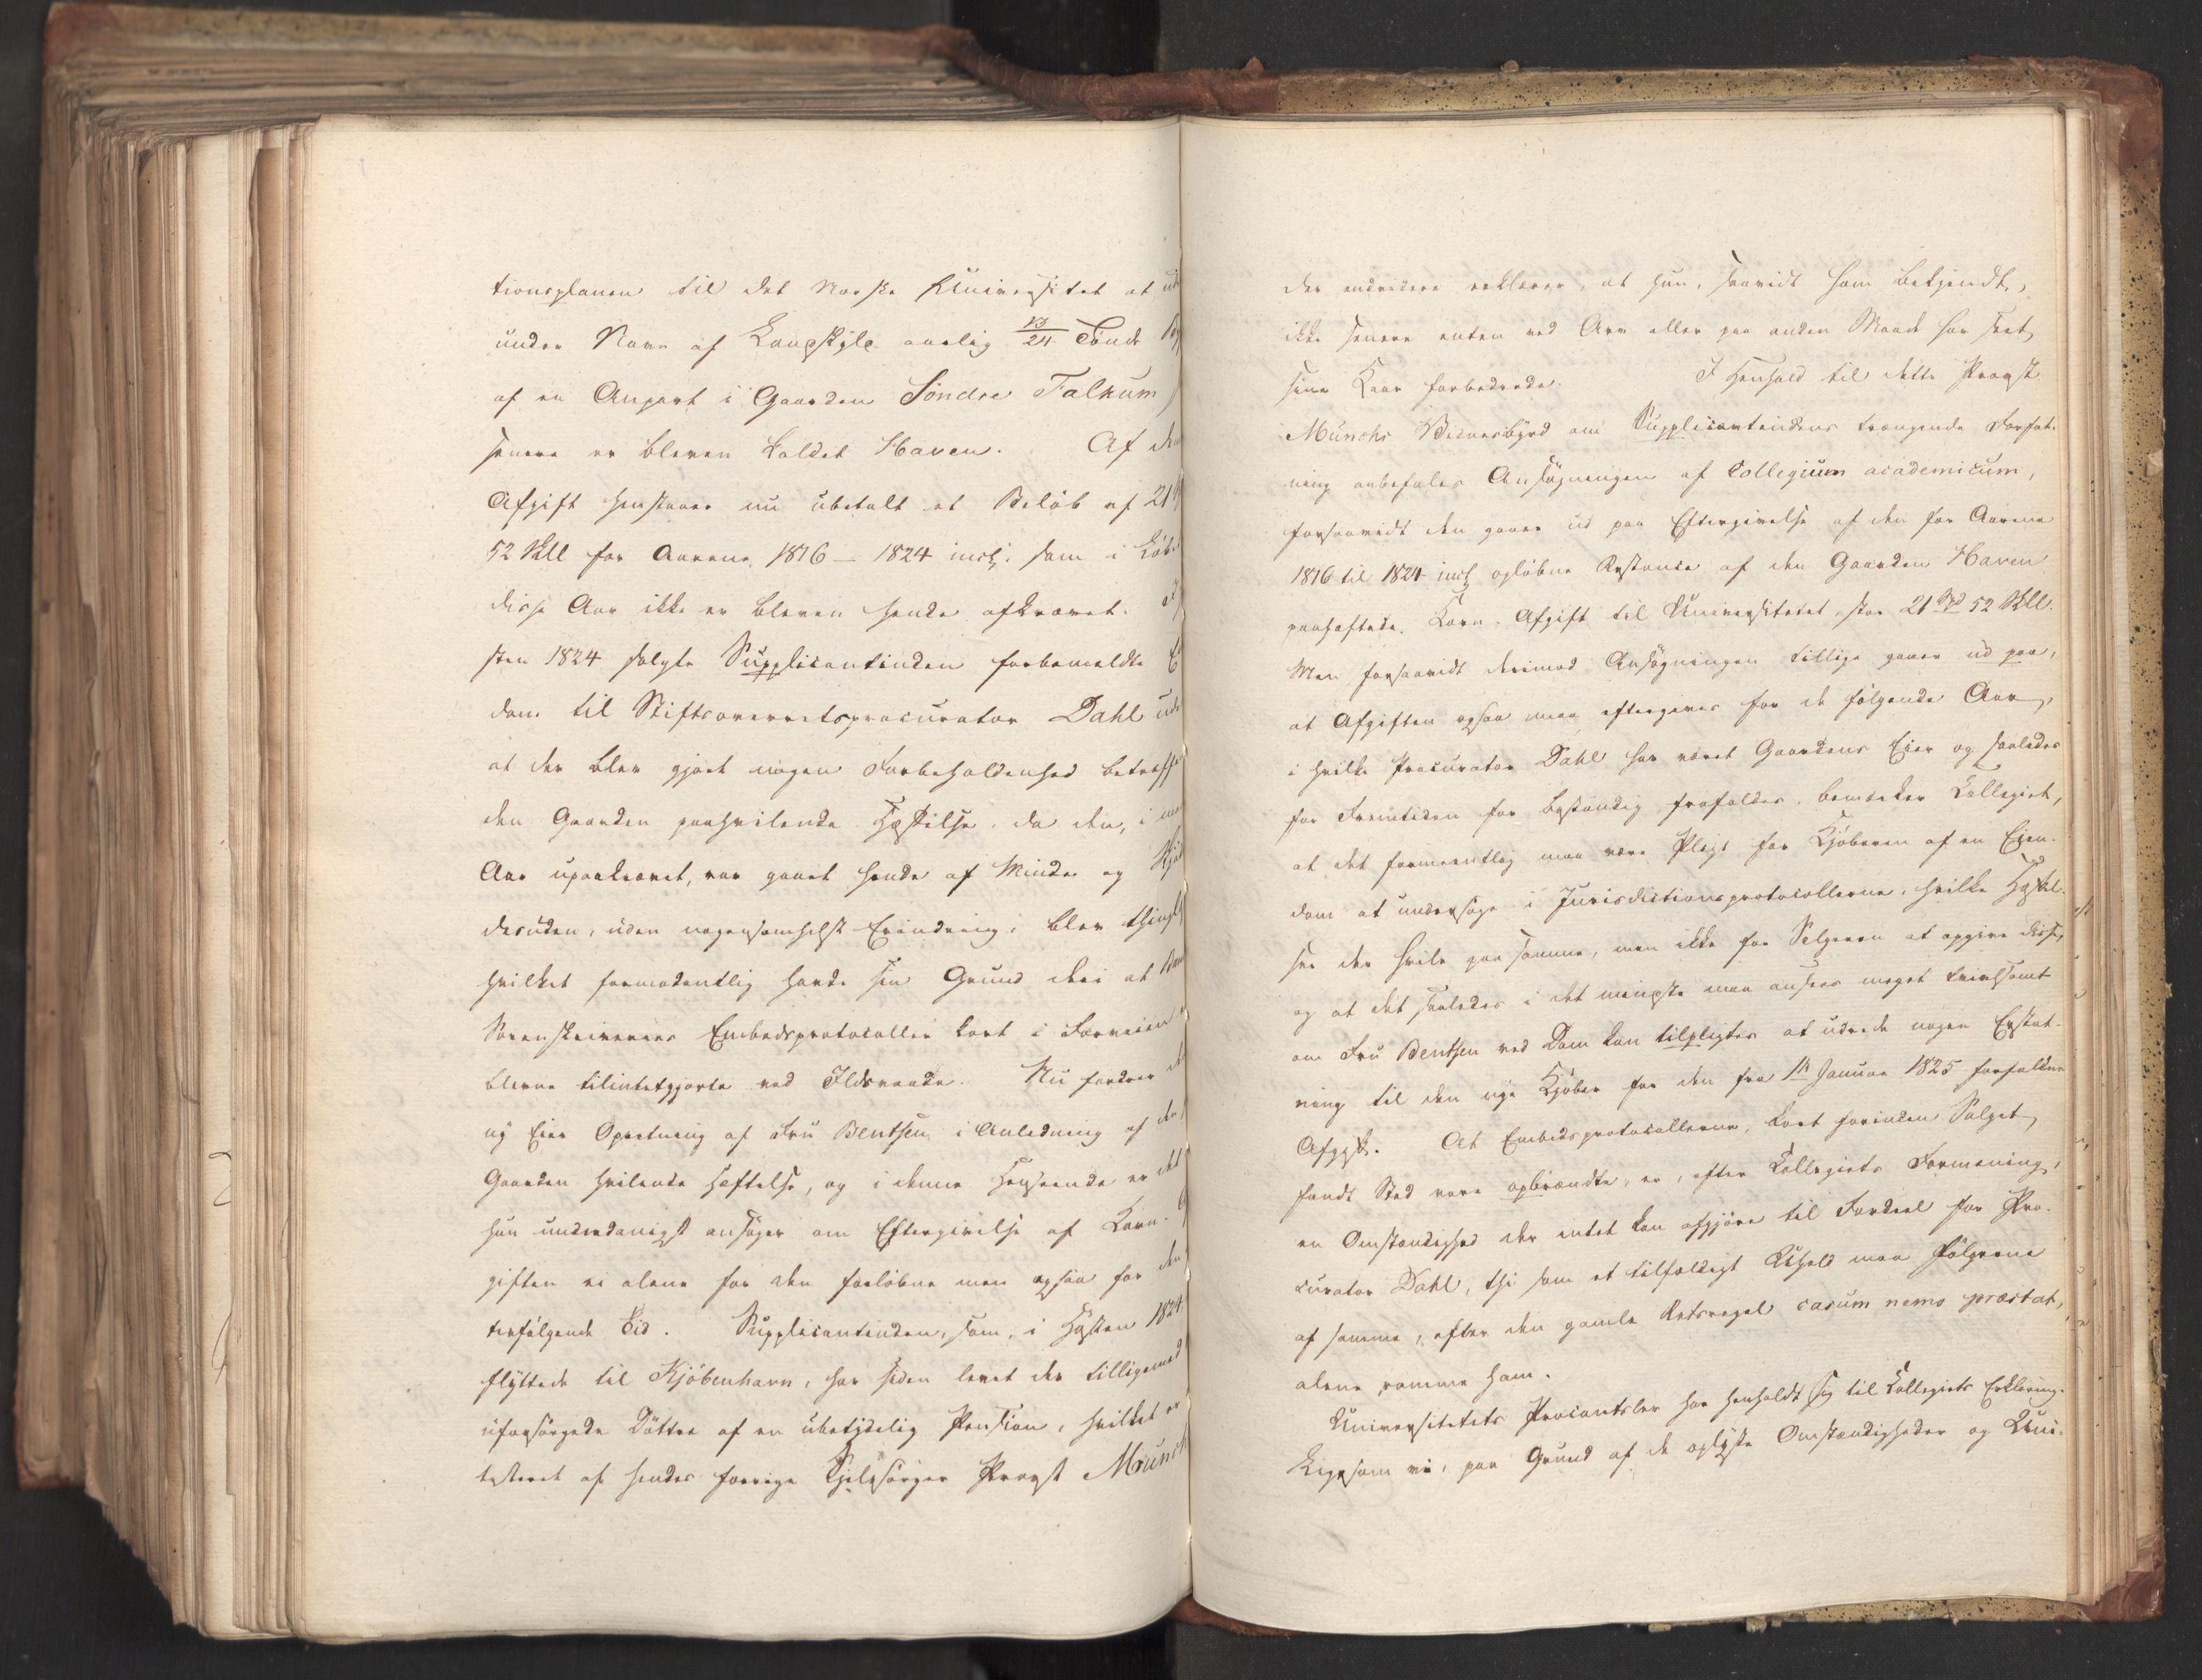 tionsplanen til det norske Universitet at ud
under Navn af Landskyld aarlig 13/24 Tønde
af en Anpart i Gaarden Søndre Falkum
senere er bleven kaldet Haven. Af den
Afgift henstaaer nu ubetalt et Beløb af 21
52 Skll for Aarene 1816 – 1824 incl. som i Løbet
disse Aar ikke er bleven hende afkrævet.
sten 1824 solgte Supplicantinden forbemeldte
dom til Stiftsoverretsprocurator Dahl ude
at der blev gjort nogen Forbeholdenhed betræffe
den Gaarden paahvilende Hæftelse, da den, i
Aar upaakrævet, var gaaet hende af Minde og Skjö
desuden, uden nogensomhelst Erindring, blev thingl
hvilket formodentlig havde sin Grund deri at
Sorenskriverens Embedsprotocoller kort i Forveien
blevne tilintetgjorte ved Ildsvaade. Nu fordrer
ny Eier Opretning af Fru Bentsen i Anledning af den
Gaarden hvilende Hæftelse, og i denne Henseende er det
hun underdanigst ansøger om Eftergivelse af Korn-
giften ei alene for den forløbne men ogsaa for den
terfølgende Tid. Supplicantinden, som, i Høsten 1824
flyttede til Kjøbenhavn, har siden levet der tilligemed
uforsørgede Døttre af en ubetydelig Pension, hvilket er
testeret af hendes forrige Sjelesørger Provst Munch
der endvidere erklærer, at hun, saavidt ham bekjendt,
ikke senere enten ved Arv eller paa anden Maade har seet
sine Kaar forbedrede. I Henhold til dette Provst
Munchs Vidnesbyrd om Supplicantindens trængende Forfat-
ning anbefales Ansøgningen af Collegium academicum,
forsaavidt den gaaer ud paa Eftergivelse af den for Aarene
1816 til 1824 incl opløbne Restance af den Gaarden Haven
paaheftede Korn-Afgift til Universitetet, stor 21 Spd 52 Skll.
Men forsaavidt derimod Ansøgningen tillige gaaer ud paa,
at Afgiften ogsaa maa eftergives for de følgende Aar,
i hvilke Procurator Dahl har været Gaardens Eier og saaledes
for Fremtiden for bestandig frafaldes, bemærker Collegiet,
at det formeentlig maa være Pligt for Kjøberen af en Eien-
dom at undersøge i Jurisdictionsprotocollerne, hvilke Hæftel-
ser der hvile paa samme, men ikke for Sælgeren at opgive disse,
og at det saaledes i det mindste maa ansees meget tvivlsomt
om Fru Bentsen ved Dom kan tilpligtes at udrede nogen Erstat-
ning til den nye Kjøber for den fra 1ste Januar 1825 forfaldne
Afgift. At Embedsprotocollerne, kort forinden Salget
fandt Sted vare opbrændte, er, efter Collegiets Formening,
en Omstændighed der intet kan afgjøre til Fordeel for Pro-
curator Dahl, thi som et tilfældigt Uheld maa Følgerne
af samme, efter den gamle Retsregel casum nemo præstat,
alene ramme ham.
Universitetets Procantsler har henholdt sig til Collegiets Erklæring.
Ligesom vi, paa Grund af de oplyste Omstændigheder og Uni-